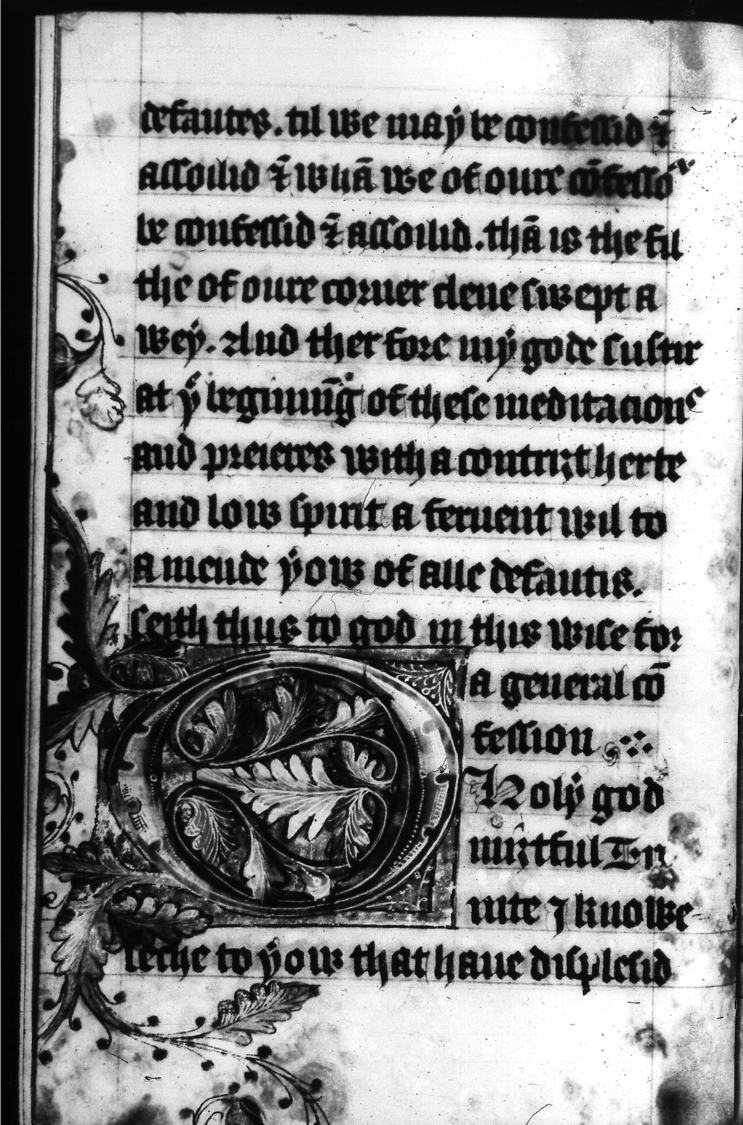 defautes. til we may be confessid ⁊
assoilid ⁊ whā we of oure cōfesso
be confessid ⁊ assoilid. thā is the fil
the of oure corner clene swept a
wey. And therfore my gode sustir
at yͤ begīnīg of these meditacions
and preieres with a contrizt herte
and low spirit a feruent wil to
a mende yow of alle defautis.
seith thus to god in this wise for
a general cō
fession
O Holy god
miztful Tri
nite I knowe
leche to yow that haue displesid